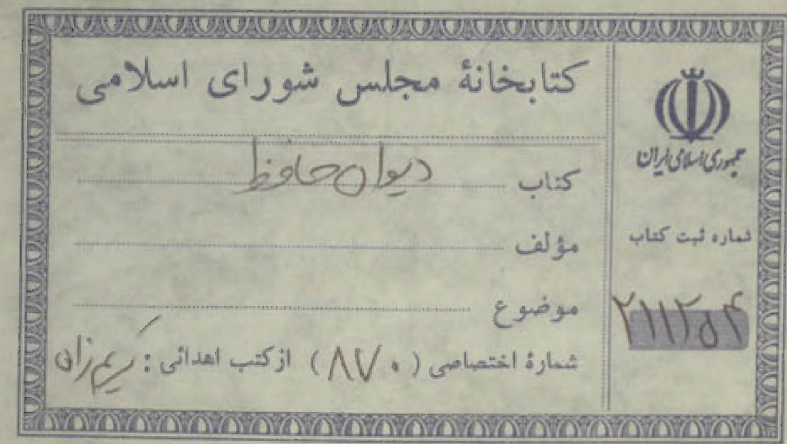 کتابخانهٔ مجلس شورای اسلامی
کتاب دیوان حافظ
مؤلف
موضوع
شمارهٔ اختصاصی ( ۸۷۰ ) از کتب اهدائی : کریم زاده
جمهوری اسلامی ایران
شماره ثبت کتاب
۲۱۱۲۵۴